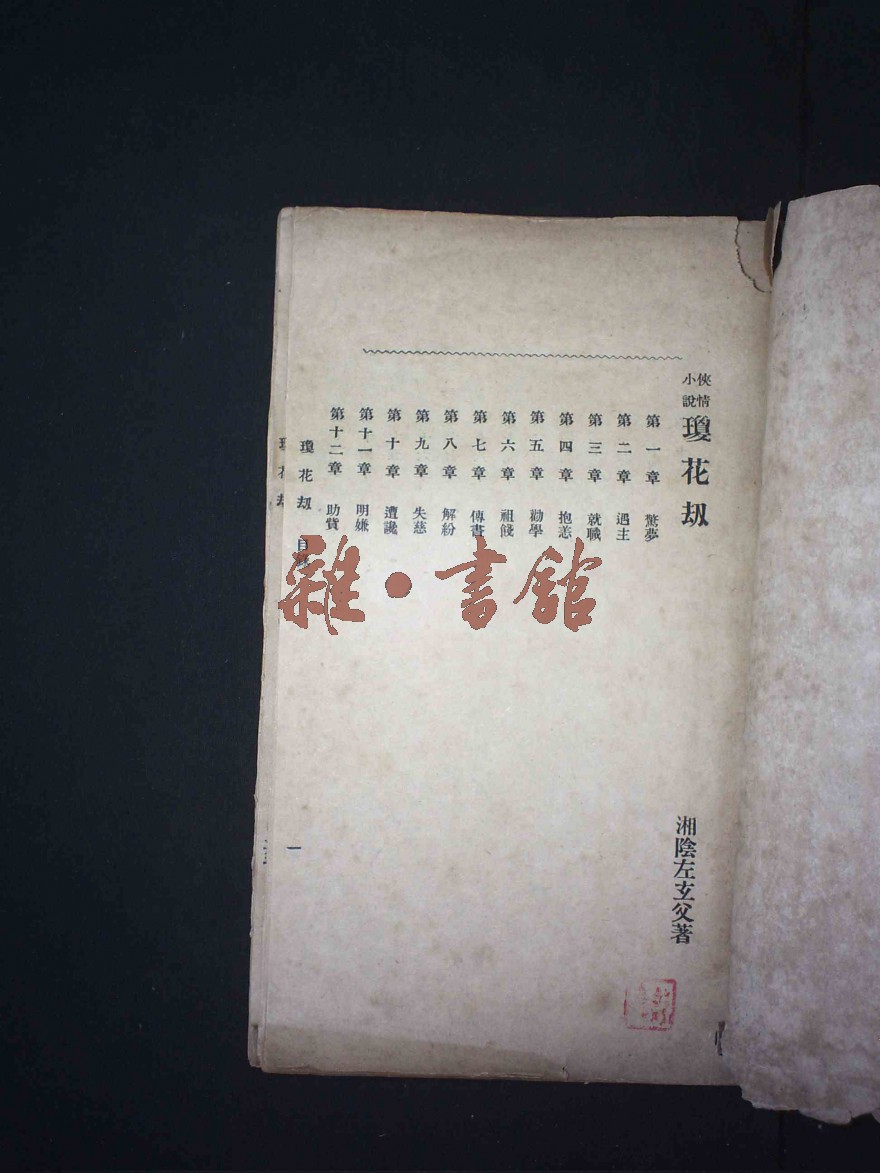 俠情小說
瓊花刼
湘陰左玄父著
第一章 驚夢
第二章 遇主
第三章 就職
第四章 抱恙
第五章 勸學
第六章 祖餞
第七章 傳書
第八章 解紛
第九章 失慈
第十章 遭讒
第十一章 明嫌
第十二章 助貲
瓊花刼 目錄
一
瓊花刼
雜·書館